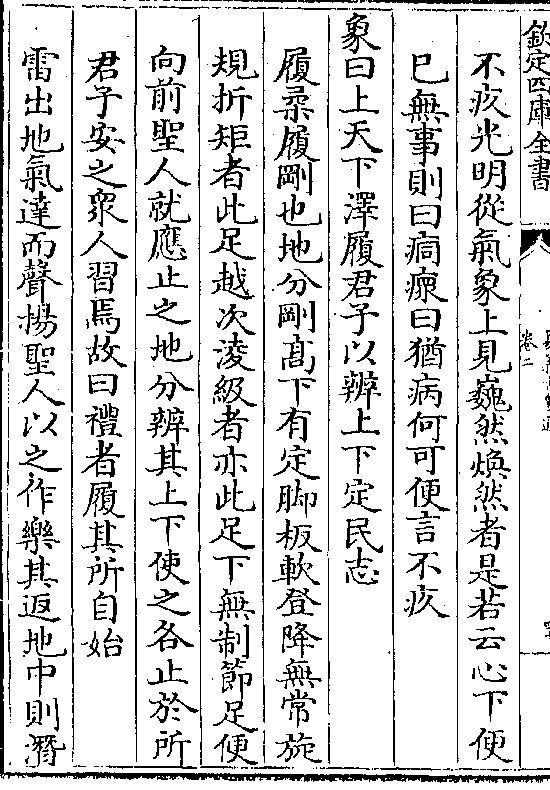 欽定四庫全書
卷二
不疚光明從氣象上見巍然煥然者是若云心下便
已無事則曰痌瘝曰猶病何可便言不疚
象曰上天下澤履君子以辨上下定民志
履柔履剛也地分剛高下有定脚板軟登降無常旋
規折矩者此足越次淩級者亦此足下無制節足便
向前聖人就應止之地分辨其上下使之各止於所
君子安之衆人習焉故曰禮者履其所自始
雷出地氣達而聲揚聖人以之作樂其返地中則潛